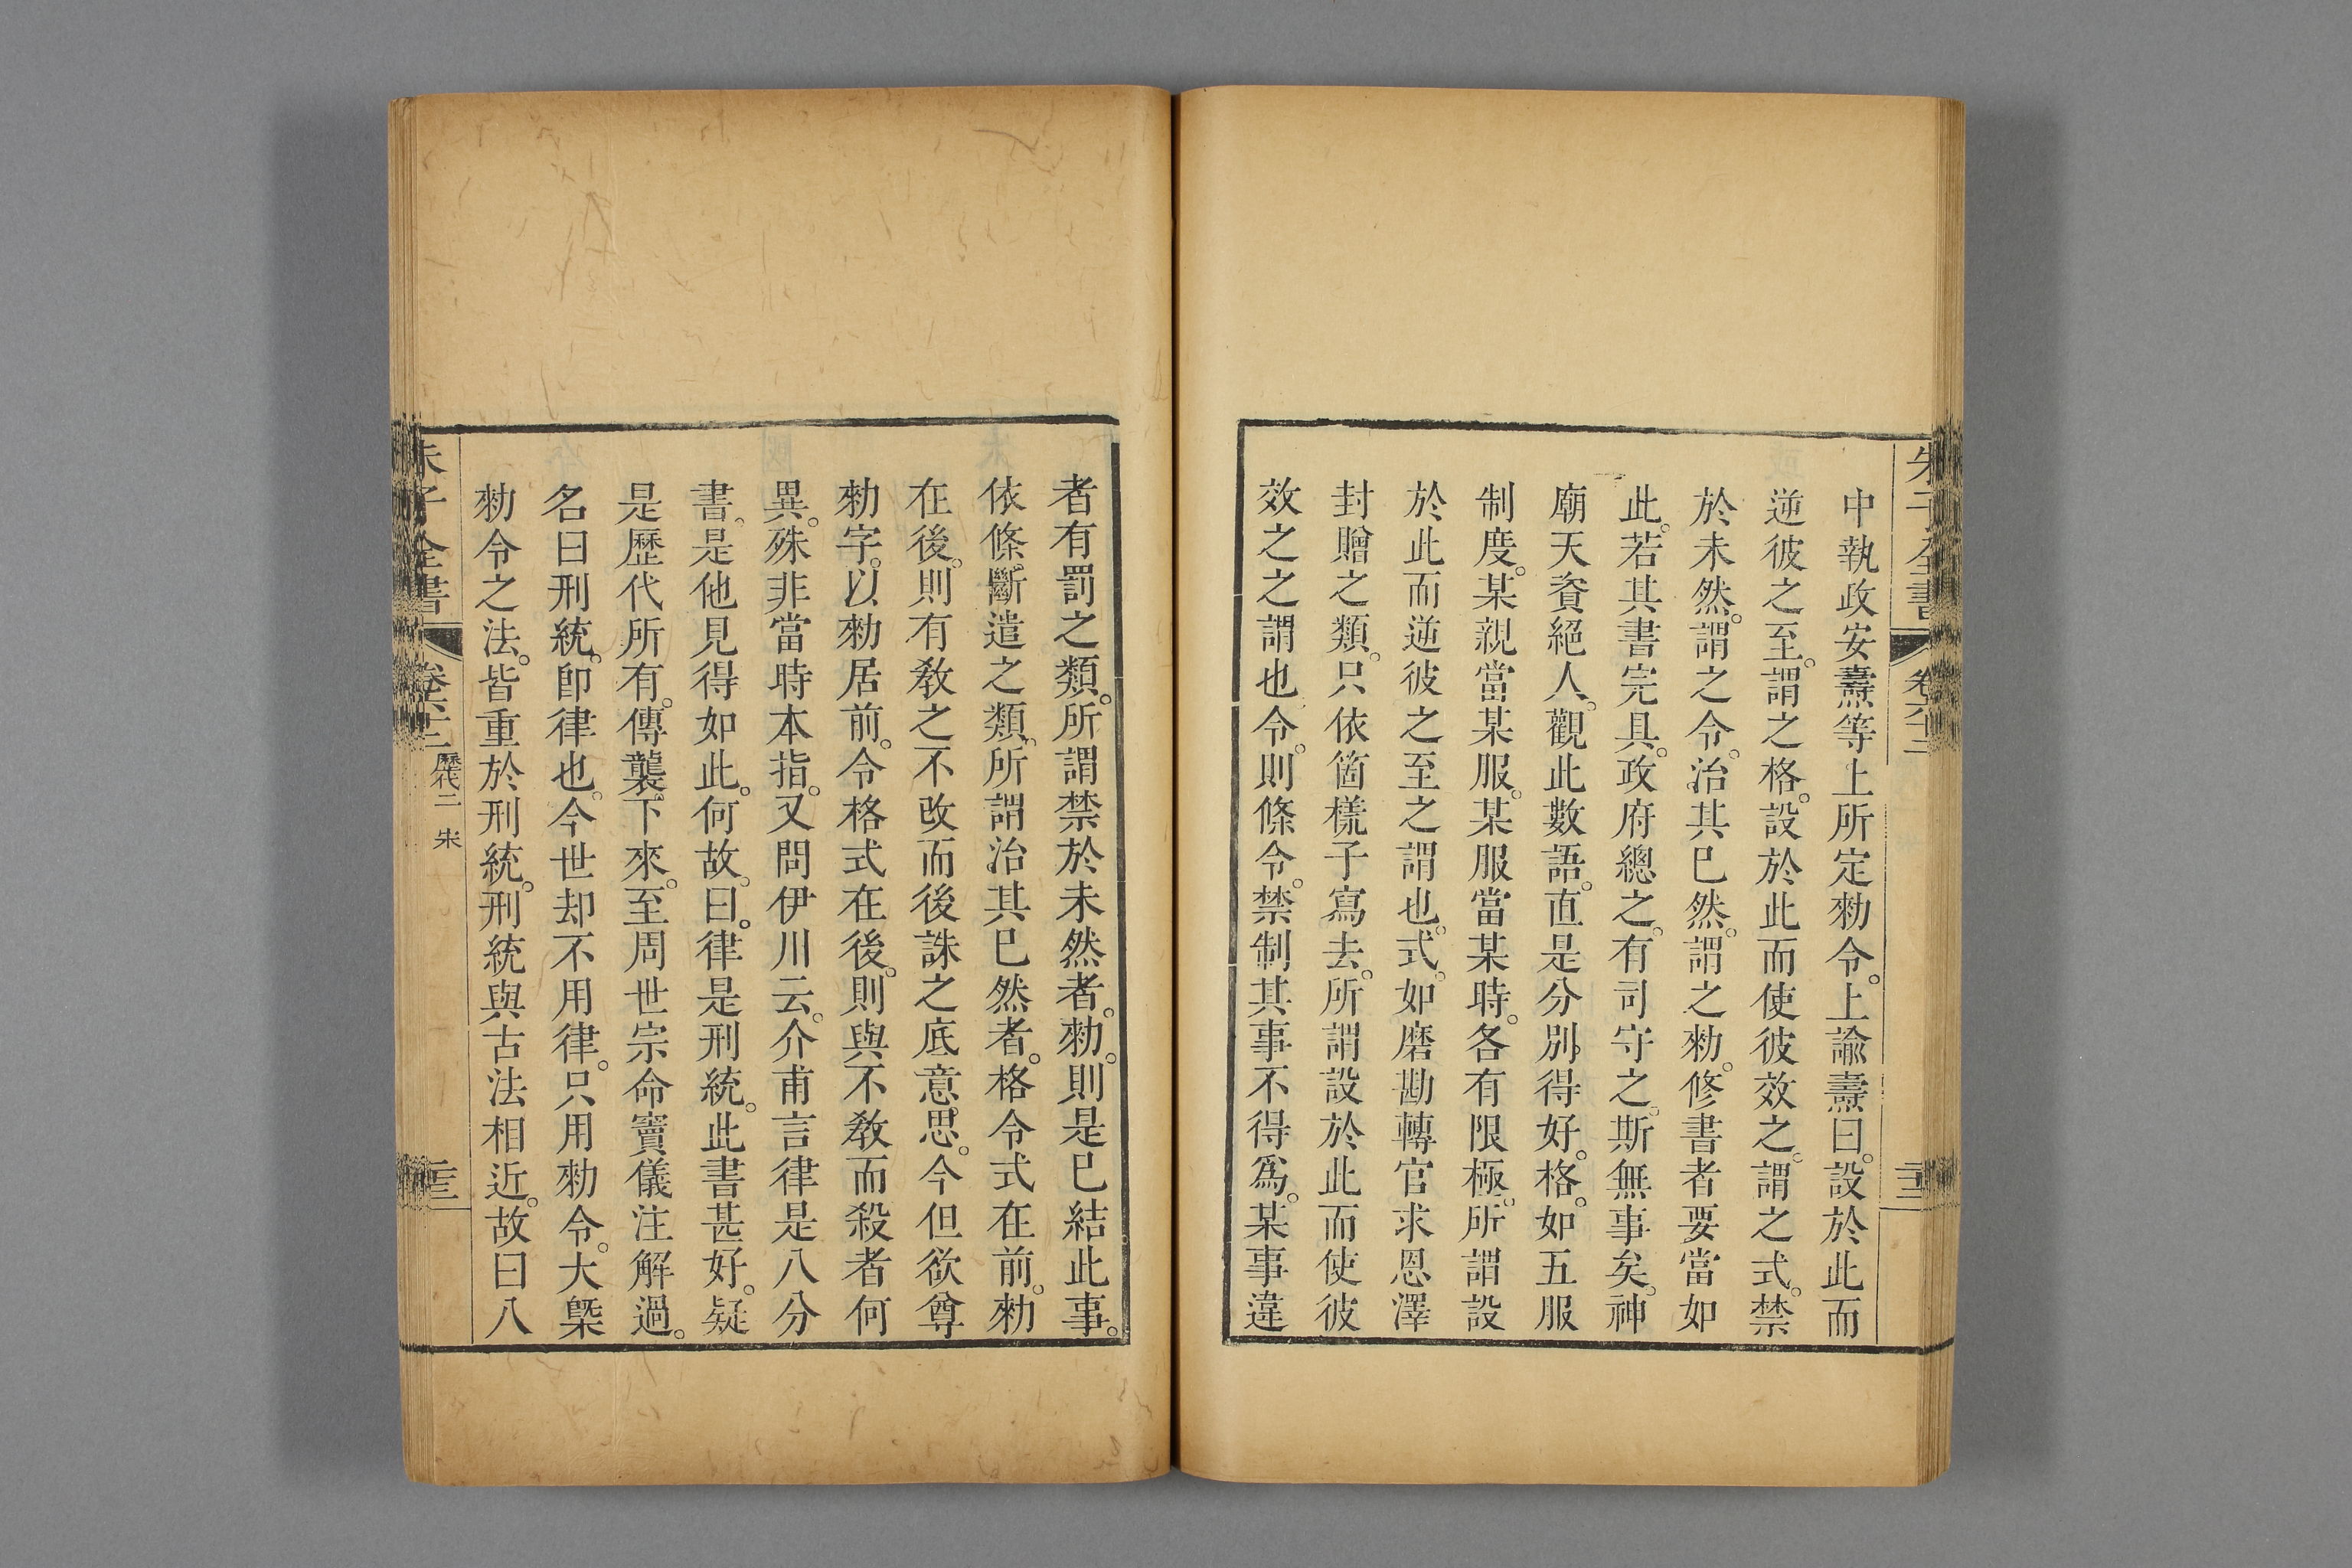 中執政安燾等上所定勑令。上諭燾曰。設於此而
逆彼之至。謂之格。設於此而使彼效之。謂之式。禁
於未然。謂之令。治其已然。謂之勑。修書者要當如
此。若其書完具。政府總之。有司守之。斯無事矣。神
廟天資絕人。觀此數語。直是分別得好。格。如五服
制度。某親當某服。某服當某時。各有限極。所謂設
於此而逆彼之至之謂也。式。如磨勘轉官求恩澤
封贈之類。只依箇樣子寫去。所謂設於此而使彼
效之之謂也。令。則條令。禁制其事不得爲。某事違
者有罰之類。所謂禁於未然者。勑。則是已結此事。
依條斷遣之類。所謂治其已然者。格令式在前。勑
在後。則有敎之不改而後誅之底意思。今但欲尊
勑字。以勑居前。令格式在後。則與不敎而殺者何
異。殊非當時本指。又問伊川云。介甫言律是八分
書。是他見得如此。何故。曰。律是刑統。此書甚好。疑
是歷代所有。傳襲下來。至周世宗命竇儀注解過。
名曰刑統。卽律也。今世却不用律。只用勑令。大槩
勑令之法。皆重於刑統。刑統與古法相近。故曰八
朱子全書
歷代二 宋